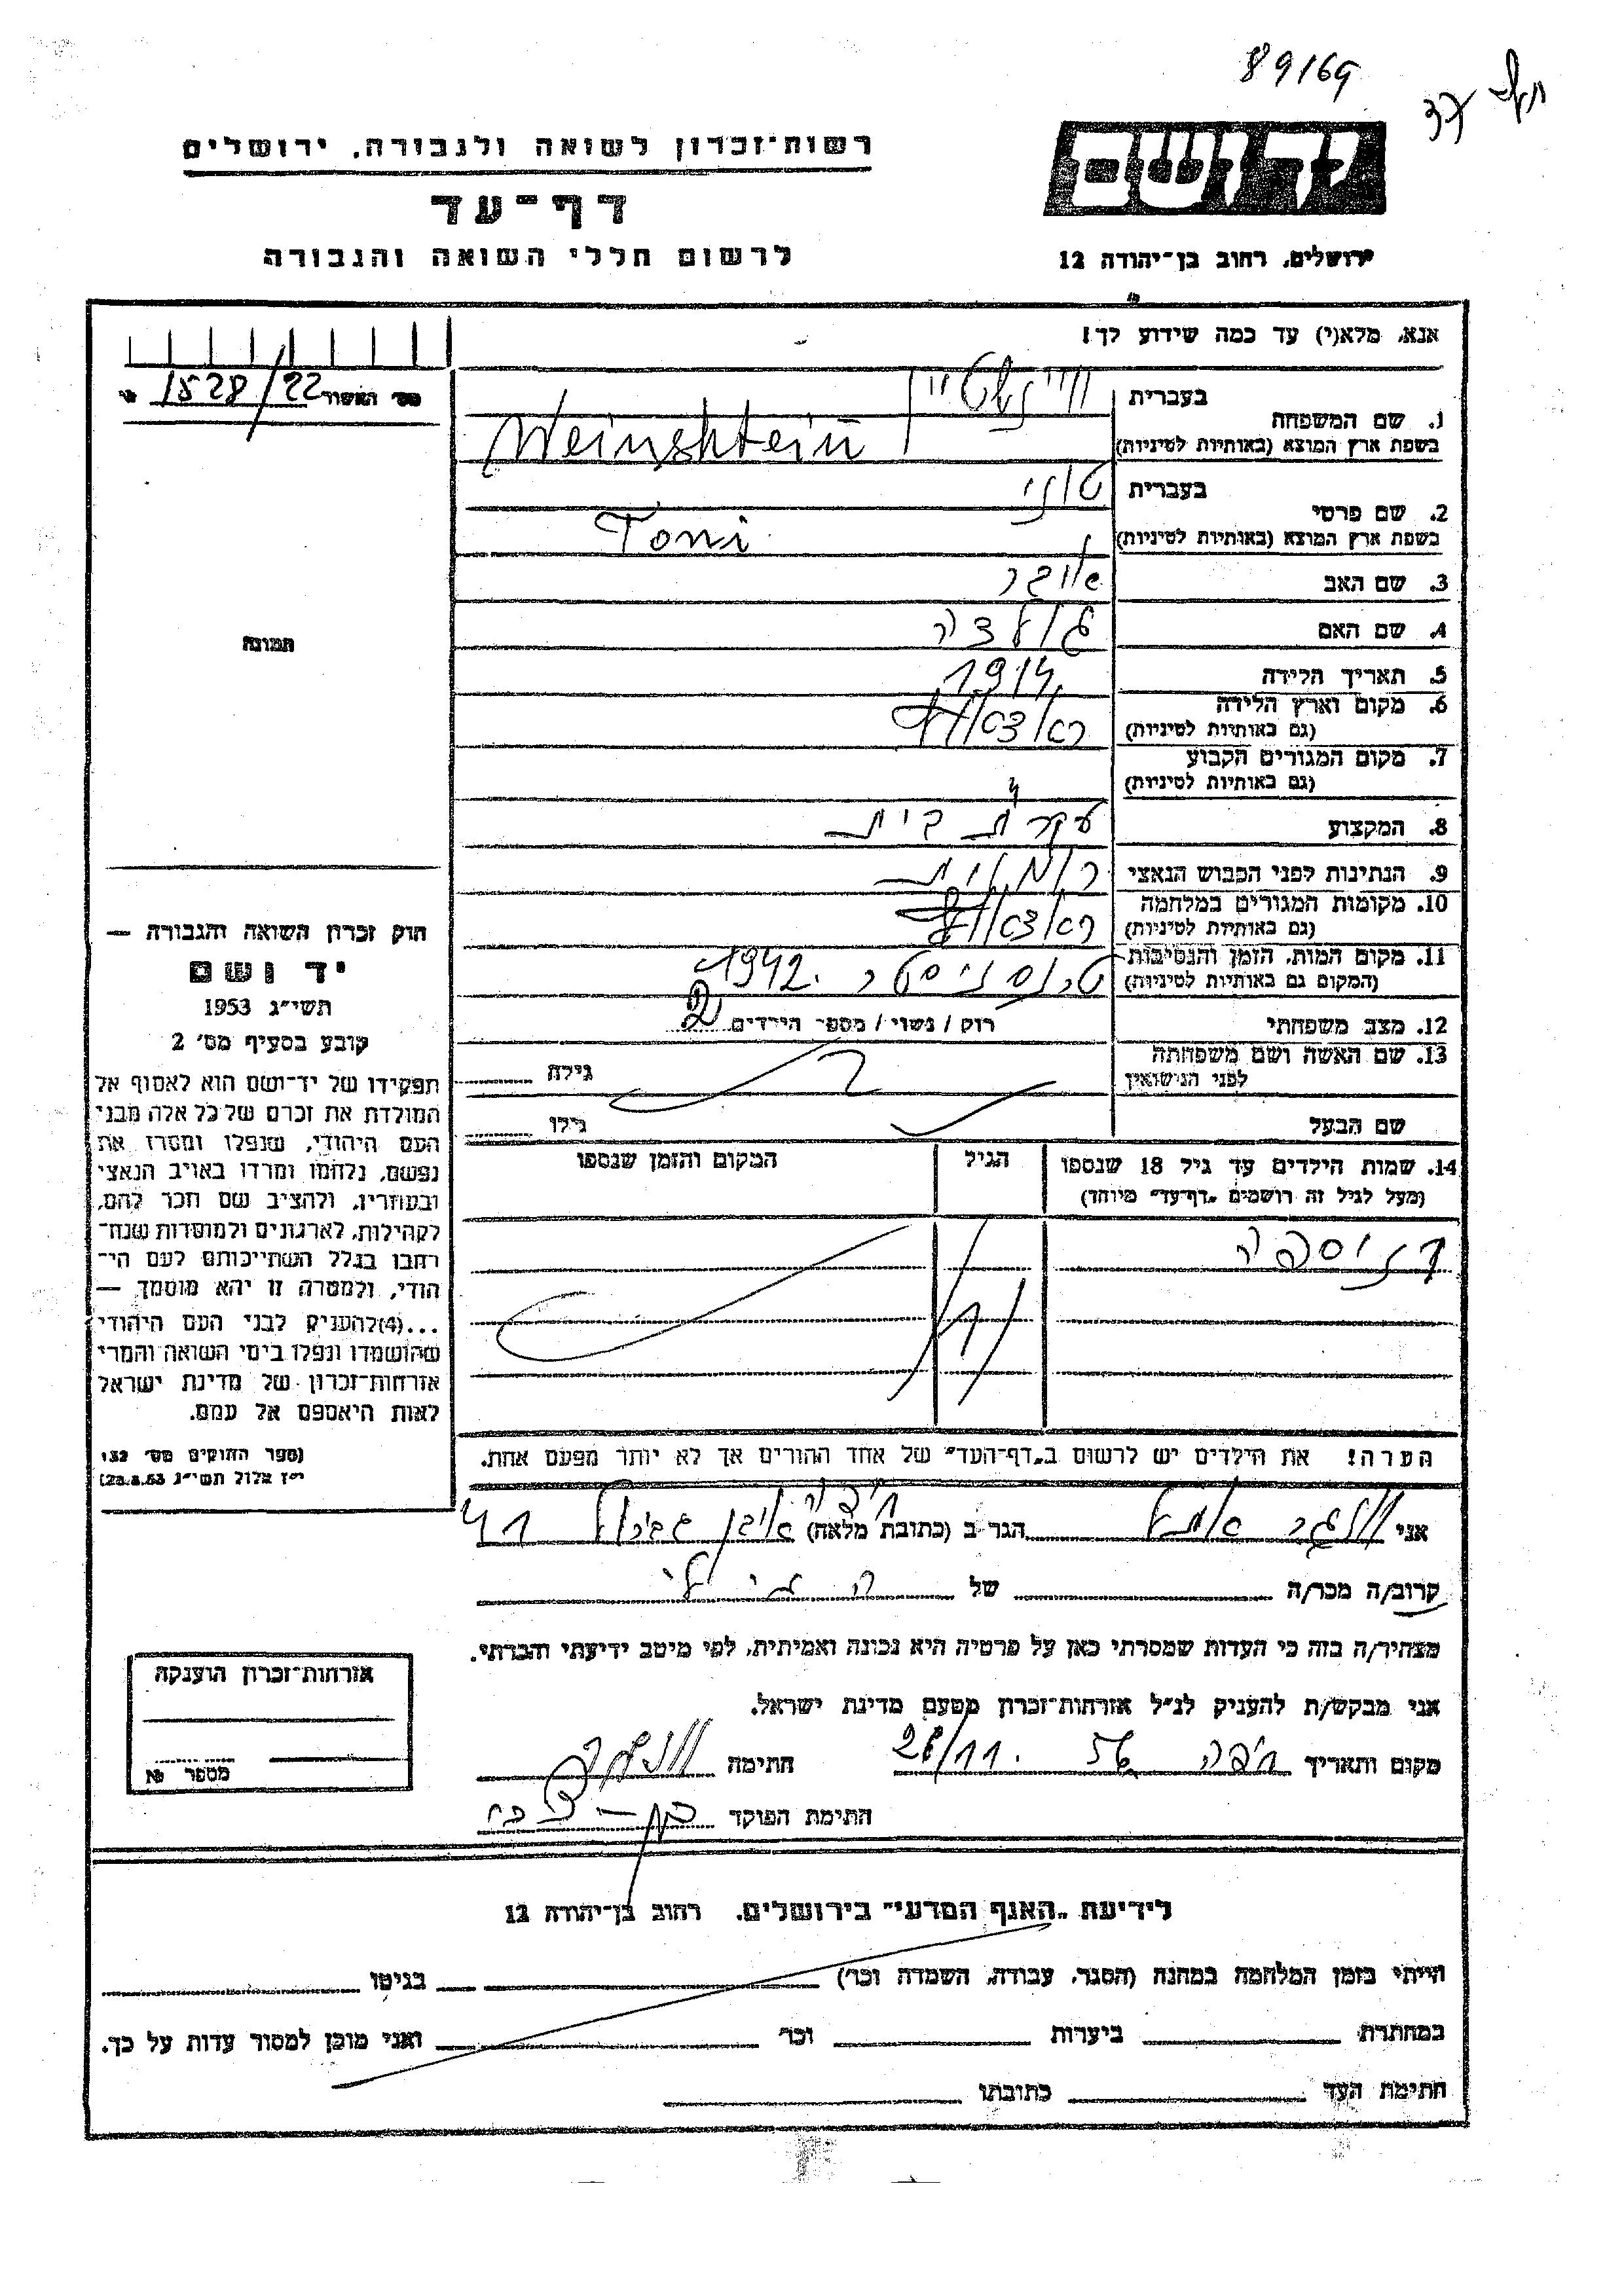 89169
37
רשות־זכרון לשואה ולגבורה. ירושלים
דף־עד
לרשום חללי השואה והגבורה
ידושם
ירושלים, רחוב בן־יהודה 12
אנא, מלא(י) עד כמה שידוע לך!
מס׳ האשור 1528/22
1. שם המשפחה
בעברית ויינשטיין
בשפת ארץ המוצא (באותיות לטיניות) Weinshtein
2. שם פרטי
בעברית טוני
בשפת ארץ המוצא (באותיות לטיניות) Toni
3. שם האב
4. שם האם גולדה
5. תאריך הלידה 1914
6. מקום וארץ הלידה
(גם באותיות לטיניות)
7. מקום המגורים הקבוע
(גם באותיות לטיניות)
8. המקצוע עקרת בית
9. הנתינות לפני הכבוש הנאצי רומנית
10. מקומות המגורים במלחמה
(גם באותיות לטיניות)
11. מקום המות, הזמן והנסיבות טרנסניסטר 1942.
(המקום גם באותיות לטיניות)
12. מצב משפחתי רוק / נשוי / מספר הילדים 2
13. שם האשה ושם משפחתה
לפני הנישואין
גילה
שם הבעל גילו
תמונה
חוק זכרון השואה והגבורה —
יד ושם
תשי״ג 1953
קובע בסעיף מס׳ 2
תפקידו של יד־ושם הוא לאסוף אל
המולדת את זכרם של כל אלה מבני
העם היהודי, שנפלו ומסרו את
נפשם, נלחמו ומרדו באויב הנאצי
ובעוזריו, ולהציב שם וזכר להם,
לקהילות, לארגונים ולמוסדות שנח־
רבו בגלל השתייכותם לעם הי־
הודי, ולמטרה זו יהא מוסמך —
...(4)להעניק לבני העם היהודי
שהושמדו ונפלו בימי השואה והמרי
אזרחות־זכרון של מדינת ישראל
לאות היאספם אל עמם.
(ספר החוקים מס׳ 132
י״ז אלול תשי״ג 28.8.53)
14. שמות הילדים עד גיל 18 שנספו
(מעל לגיל זה רושמים „דף־עד״ מיוחד)
הגיל
המקום והזמן שנספו
הערה! את הילדים יש לרשום ב„דף־העד״ של אחד ההורים אך לא יותר מפעם אחת.
אני הגר ב (כתובת מלאה) חיפה אבן גבירול 41
קרוב/ה מכר/ה של
מצהיר/ה בזה כי העדות שמסרתי כאן על פרטיה היא נכונה ואמיתית, לפי מיטב ידיעתי והכרתי.
אני מבקש/ת להעניק לנ״ל אזרחות־זכרון מטעם מדינת ישראל.
מקום ותאריך חיפה 26/11. 56 חתימה
חתימת הפוקד
אזרחות־זכרון הוענקה
מספר №
לידיעת „האגף המדעי״ בירושלים. רחוב בן־יהודה 12
הייתי בזמן המלחמה במחנה (הסגר, עבודה, השמדה וכו׳) בגיטו
במחתרת ביערות וכו׳ ואני מוכן למסור עדות על כך.
חתימת העד כתובתו